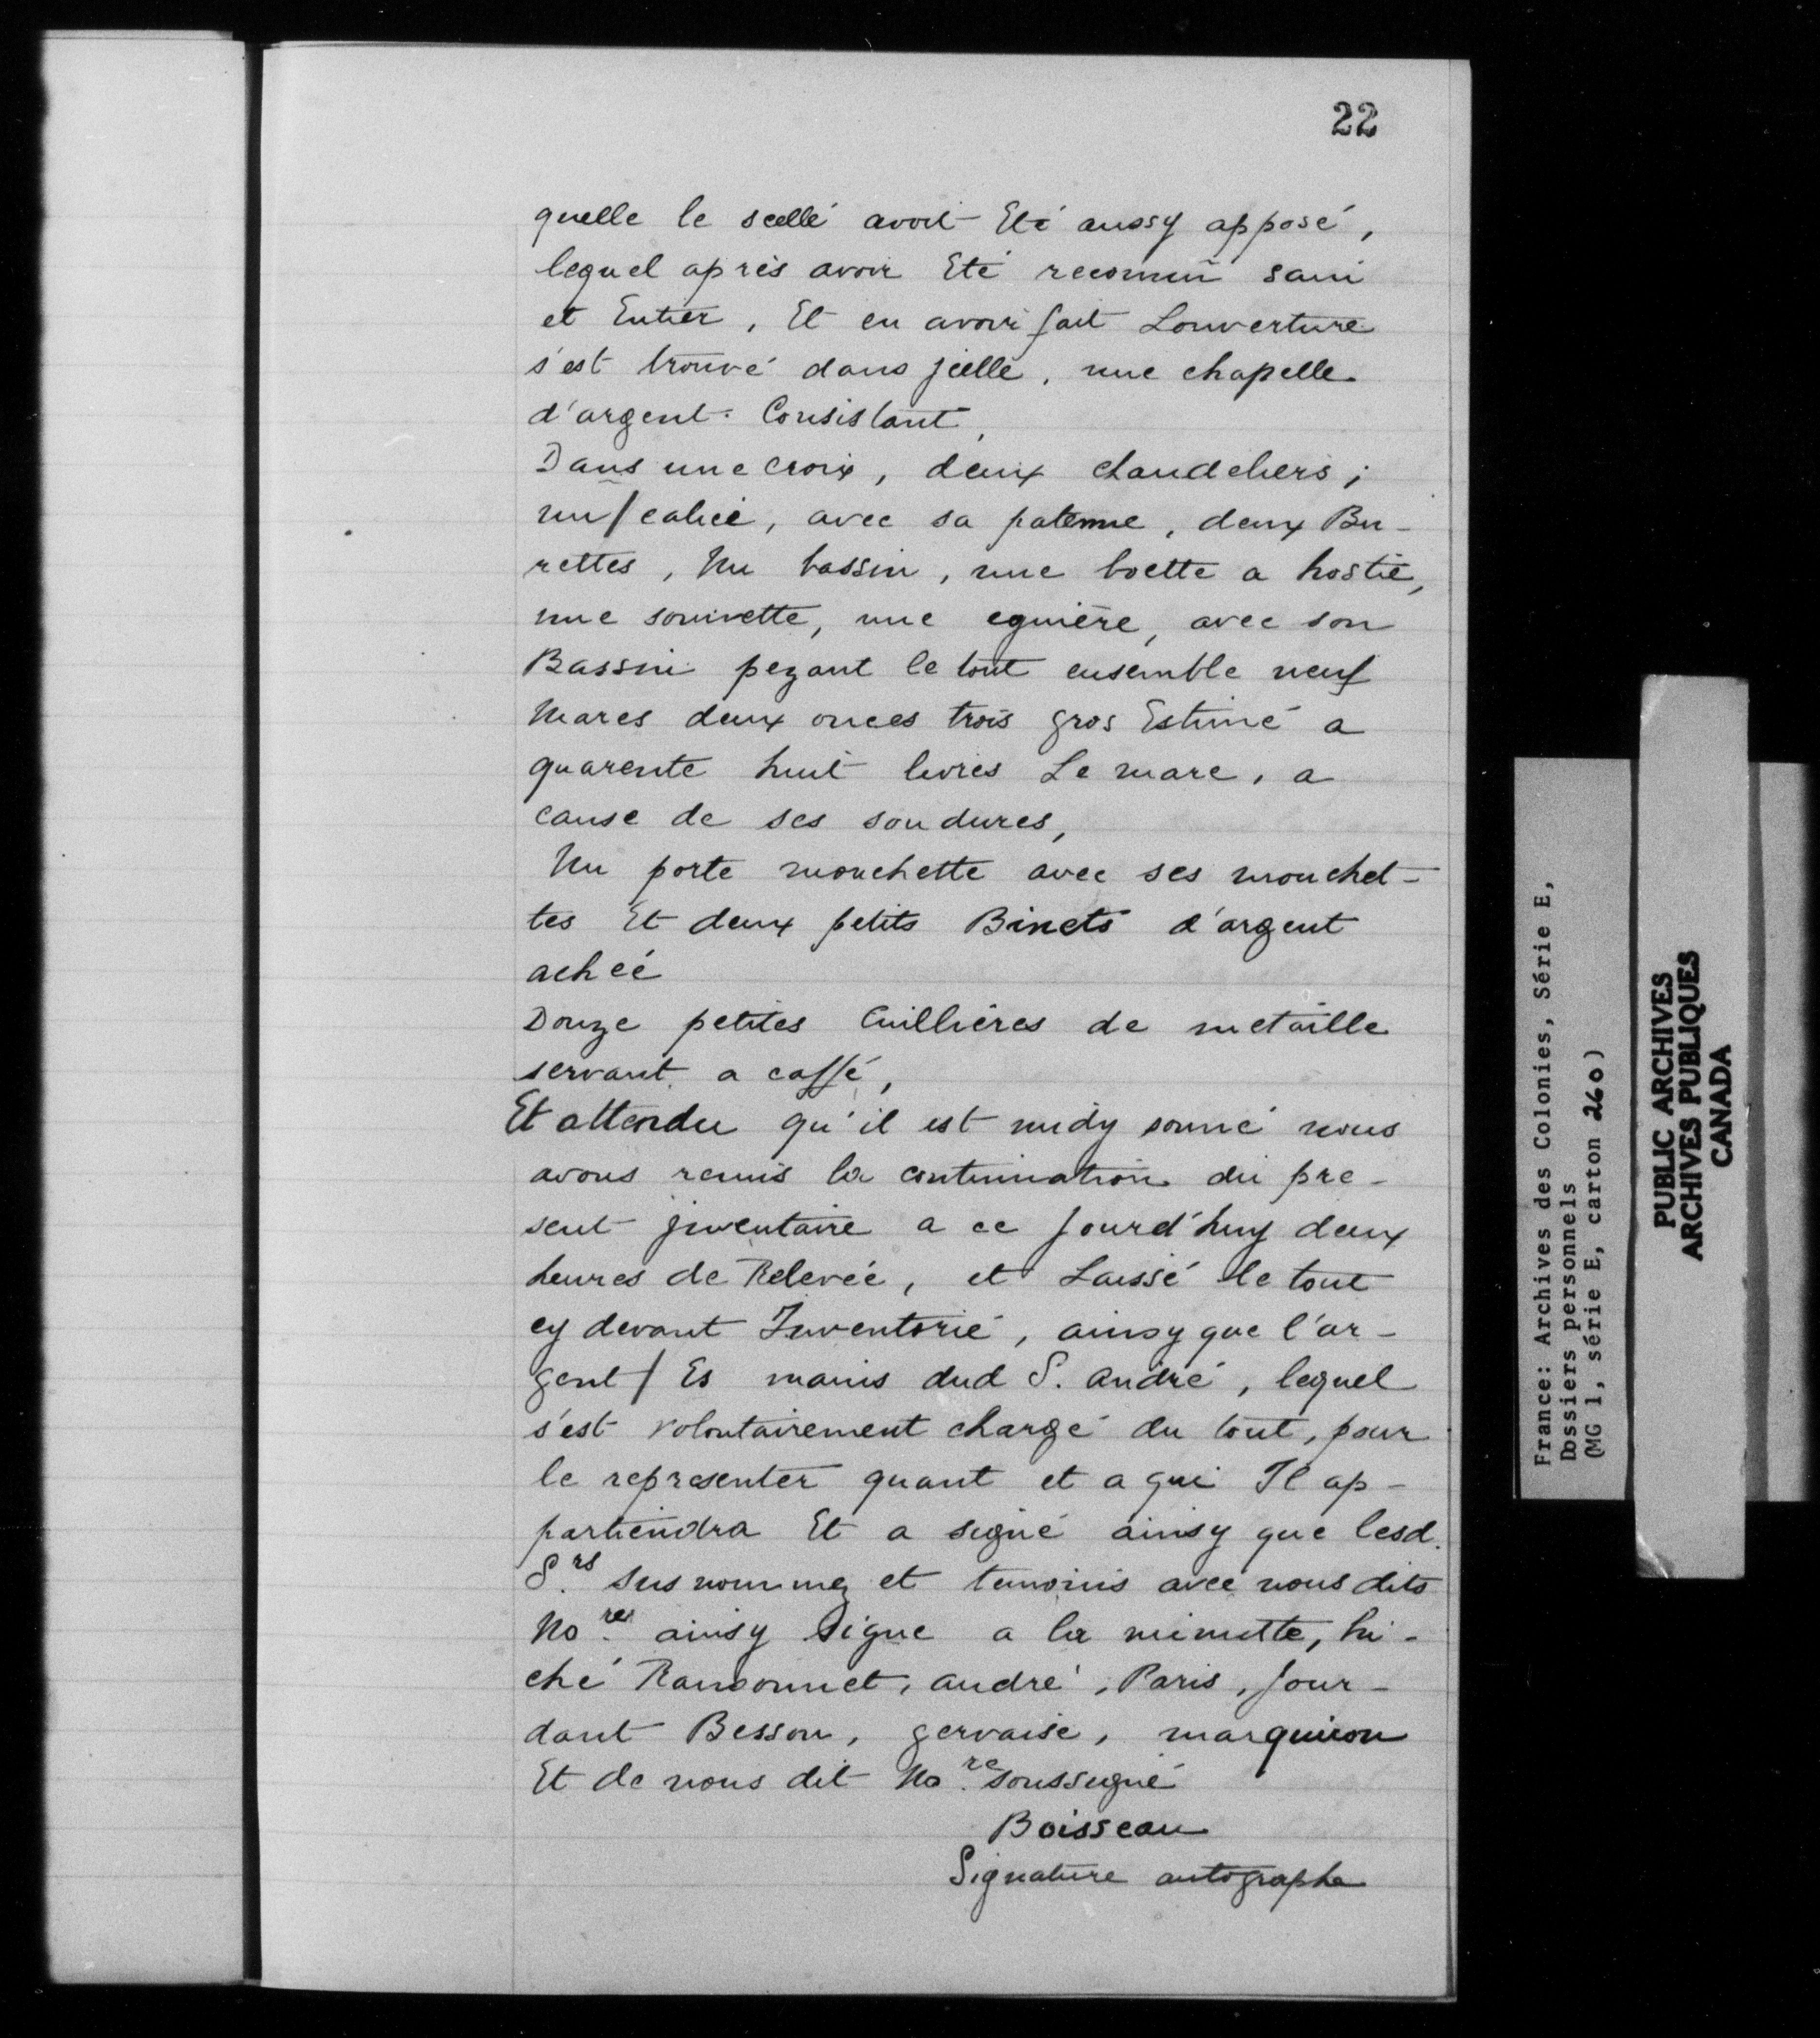 22
quelle le scellé avoit Eté aussy apposé,
lequel après avoir Eté reconnu sain
et Entier, Et en avoir fait Louverture
s'est trouvé dans jcelle, une chapelle
d'argent. Consistant,
Dans une croix, deux chandeliers;
un calice, avec sa patenne, deux Bu-
rettes, Un bassin, une boette a hostie,
une sonnette, une eguière, avec son
Bassin pezant le tout ensemble neuf
Marcs deux onces trois gros Estimé a
quarente huit livres Le marc, a
cause de ses soudures,
Un porte mouchette avec ses mouchet-
tes Et deux petits Binets d'argent
achéé
Douze petites Cuillières de metaille
servant a caffé,
Et attendu qu'il est midy sonné nous
avons remis la continuation du pre-
sent jnventaire a ce jourd'huy deux
heures de Relevéé, et Laissé le tout
cy devant Inventorié, ainsy que l'ar-
gent Es mains dud S. andré, lequel
s'est volontairement chargé du tout, pour
le representer quant et a qui Il ap-
partiendra Et a signé ainsy que lesd.
S.rs susnommez et temoins avec nous dits
No.res ainsy Signe a la minutte, hi-
ché Ransonnet, andré, Paris, Jour-
dant Besson, gervaise, marquiron
Et de nous dit No.re soussigné
Boisseau
Signature autographe
France: Archives des Colonies, Série E,
Dossiers personnels
(MG 1, série E, carton 260)
PUBLIC ARCHIVES
ARCHIVES PUBLIQUES
CANADA